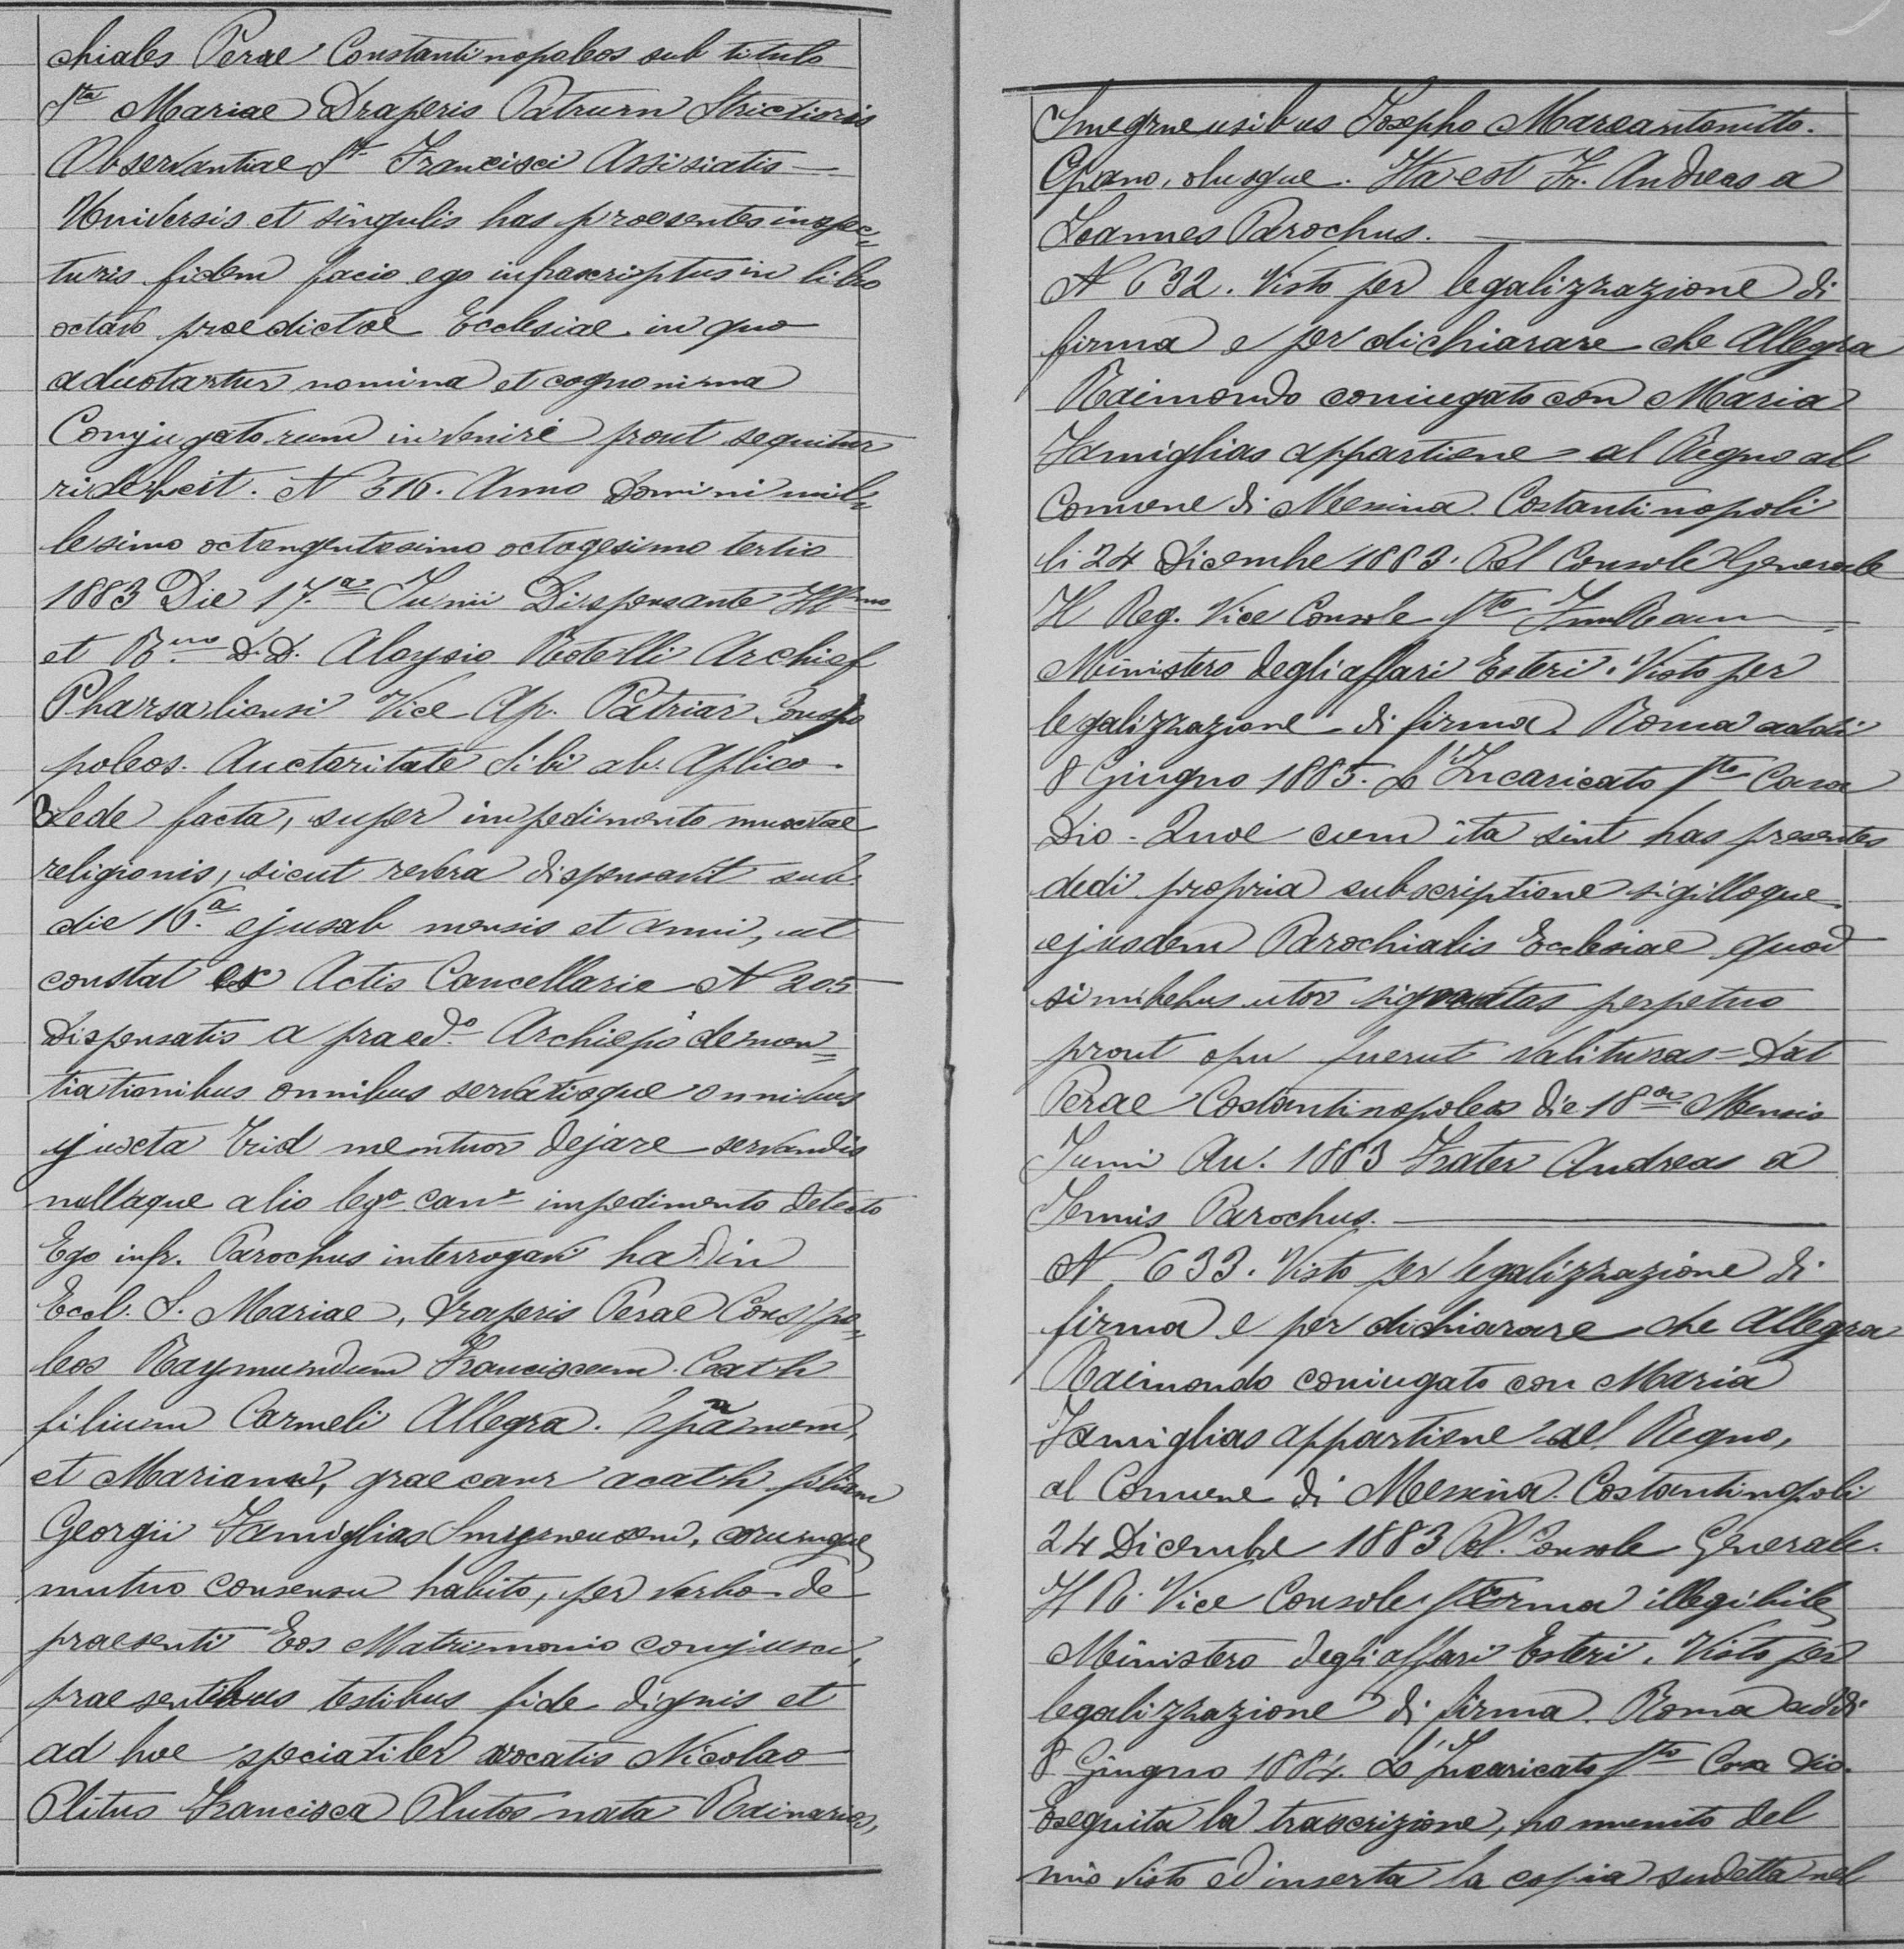 chiales Perae Constantinopoleos sub titulo
Sta Mariae Draperis Patrum Strictioris
Observantiae Sti Francisci Assisiatis —
Universis et singulis has praesentes inspec=
turis fidem facio ego infrascriptus in libro
octavo praedictae Ecclesiae in quo
adnotantur nomina et cognomina
Conjugatorum inveniri prout sequitur
N 516. Anno Domini mil=
lesimo octengentesimo octogesimo tertio
1883 Die 17.a Junii Dispensante Illmo
et Rmo D.D. Aloysio Rotelli Archief
Pharsaliensi Vice Ap. Patriar
poleos. Auctoritate sibi ab. Aplica.
Sede facta, super impedimento muxtae
religionis, sicut revera dispensavit sub.
die 16.a ejusab mensis et anni, ut
constat ex Actis Cancellarie N 205
Dispensatis a praed.o Archiepo denon=
tiationibus omnibus servatisque omnibus
juxta Trid dejare servandis
nullaque alio lego cano impedimento detecto
Ego infr. Parochus interrogavi ha din
Eccl. S. Mariae, Draperis Perae Const/po=
leos Raymundum Franciscum. Cath
filium Carmeli Allegra.
et Mariam, graecam acath filiam
Georgii Famiglias Smyrneusem, eorumque
mutuo consensu habito, per verba de
praesenti Eos Matrimonio conjunxi,
praesentibus testibus fide dignis et
ad hoc speciatiler vocatis Nicolao
Plitus Francisca Plutos nata Rainaries,
Josepho Marcantonitto.
Ita est Fr. Andreas a
Joannes Parochus. —
N 632. Visto per legalizzazione di
firma e per dichiarare che Allegra
Raimondo coniugato con Maria
Famiglias appartiene al Regno al
Comune di Messina. Costantinopoli
li 24 Dicembe 1883. Pel Console Generale
Il Reg. Vice Console fto —
Ministero degli affari Esteri. Visto per
legalizzazione di firma. Roma addi
8 Giugno 1885. L'Incaricato fto Casa
Dio - Quae cum ita sint has presentes
dedi propria subscriptione sigilloque
ejusdem Parochialis Ecclesiae quod
utor perpetuo
prout opu fuerut valituras = Dat
Perae Costantinopoleos die 18a Mensis
Junii An. 1883 Frater Andreas a
Parochus. —
N 633. Visto per legalizzazione di
firma e per dichiarare che Allegra
Raimondo coniugato con Maria
Famiglias appartiene al Regno,
al Comune di Messina. Costantinopoli
24 Dicembre 1883 Pel. Console Generale.
Il R. Vice Console firma illegibile
Ministero degli affari Esteri. Visto per
legalizzazione di firma. Roma addi
8 Giugno 1884. L'Incaricato fto Casa Dio.
Eseguita la trascrizione, ho munito del
mio visto ed inserta la copia sudetta nel